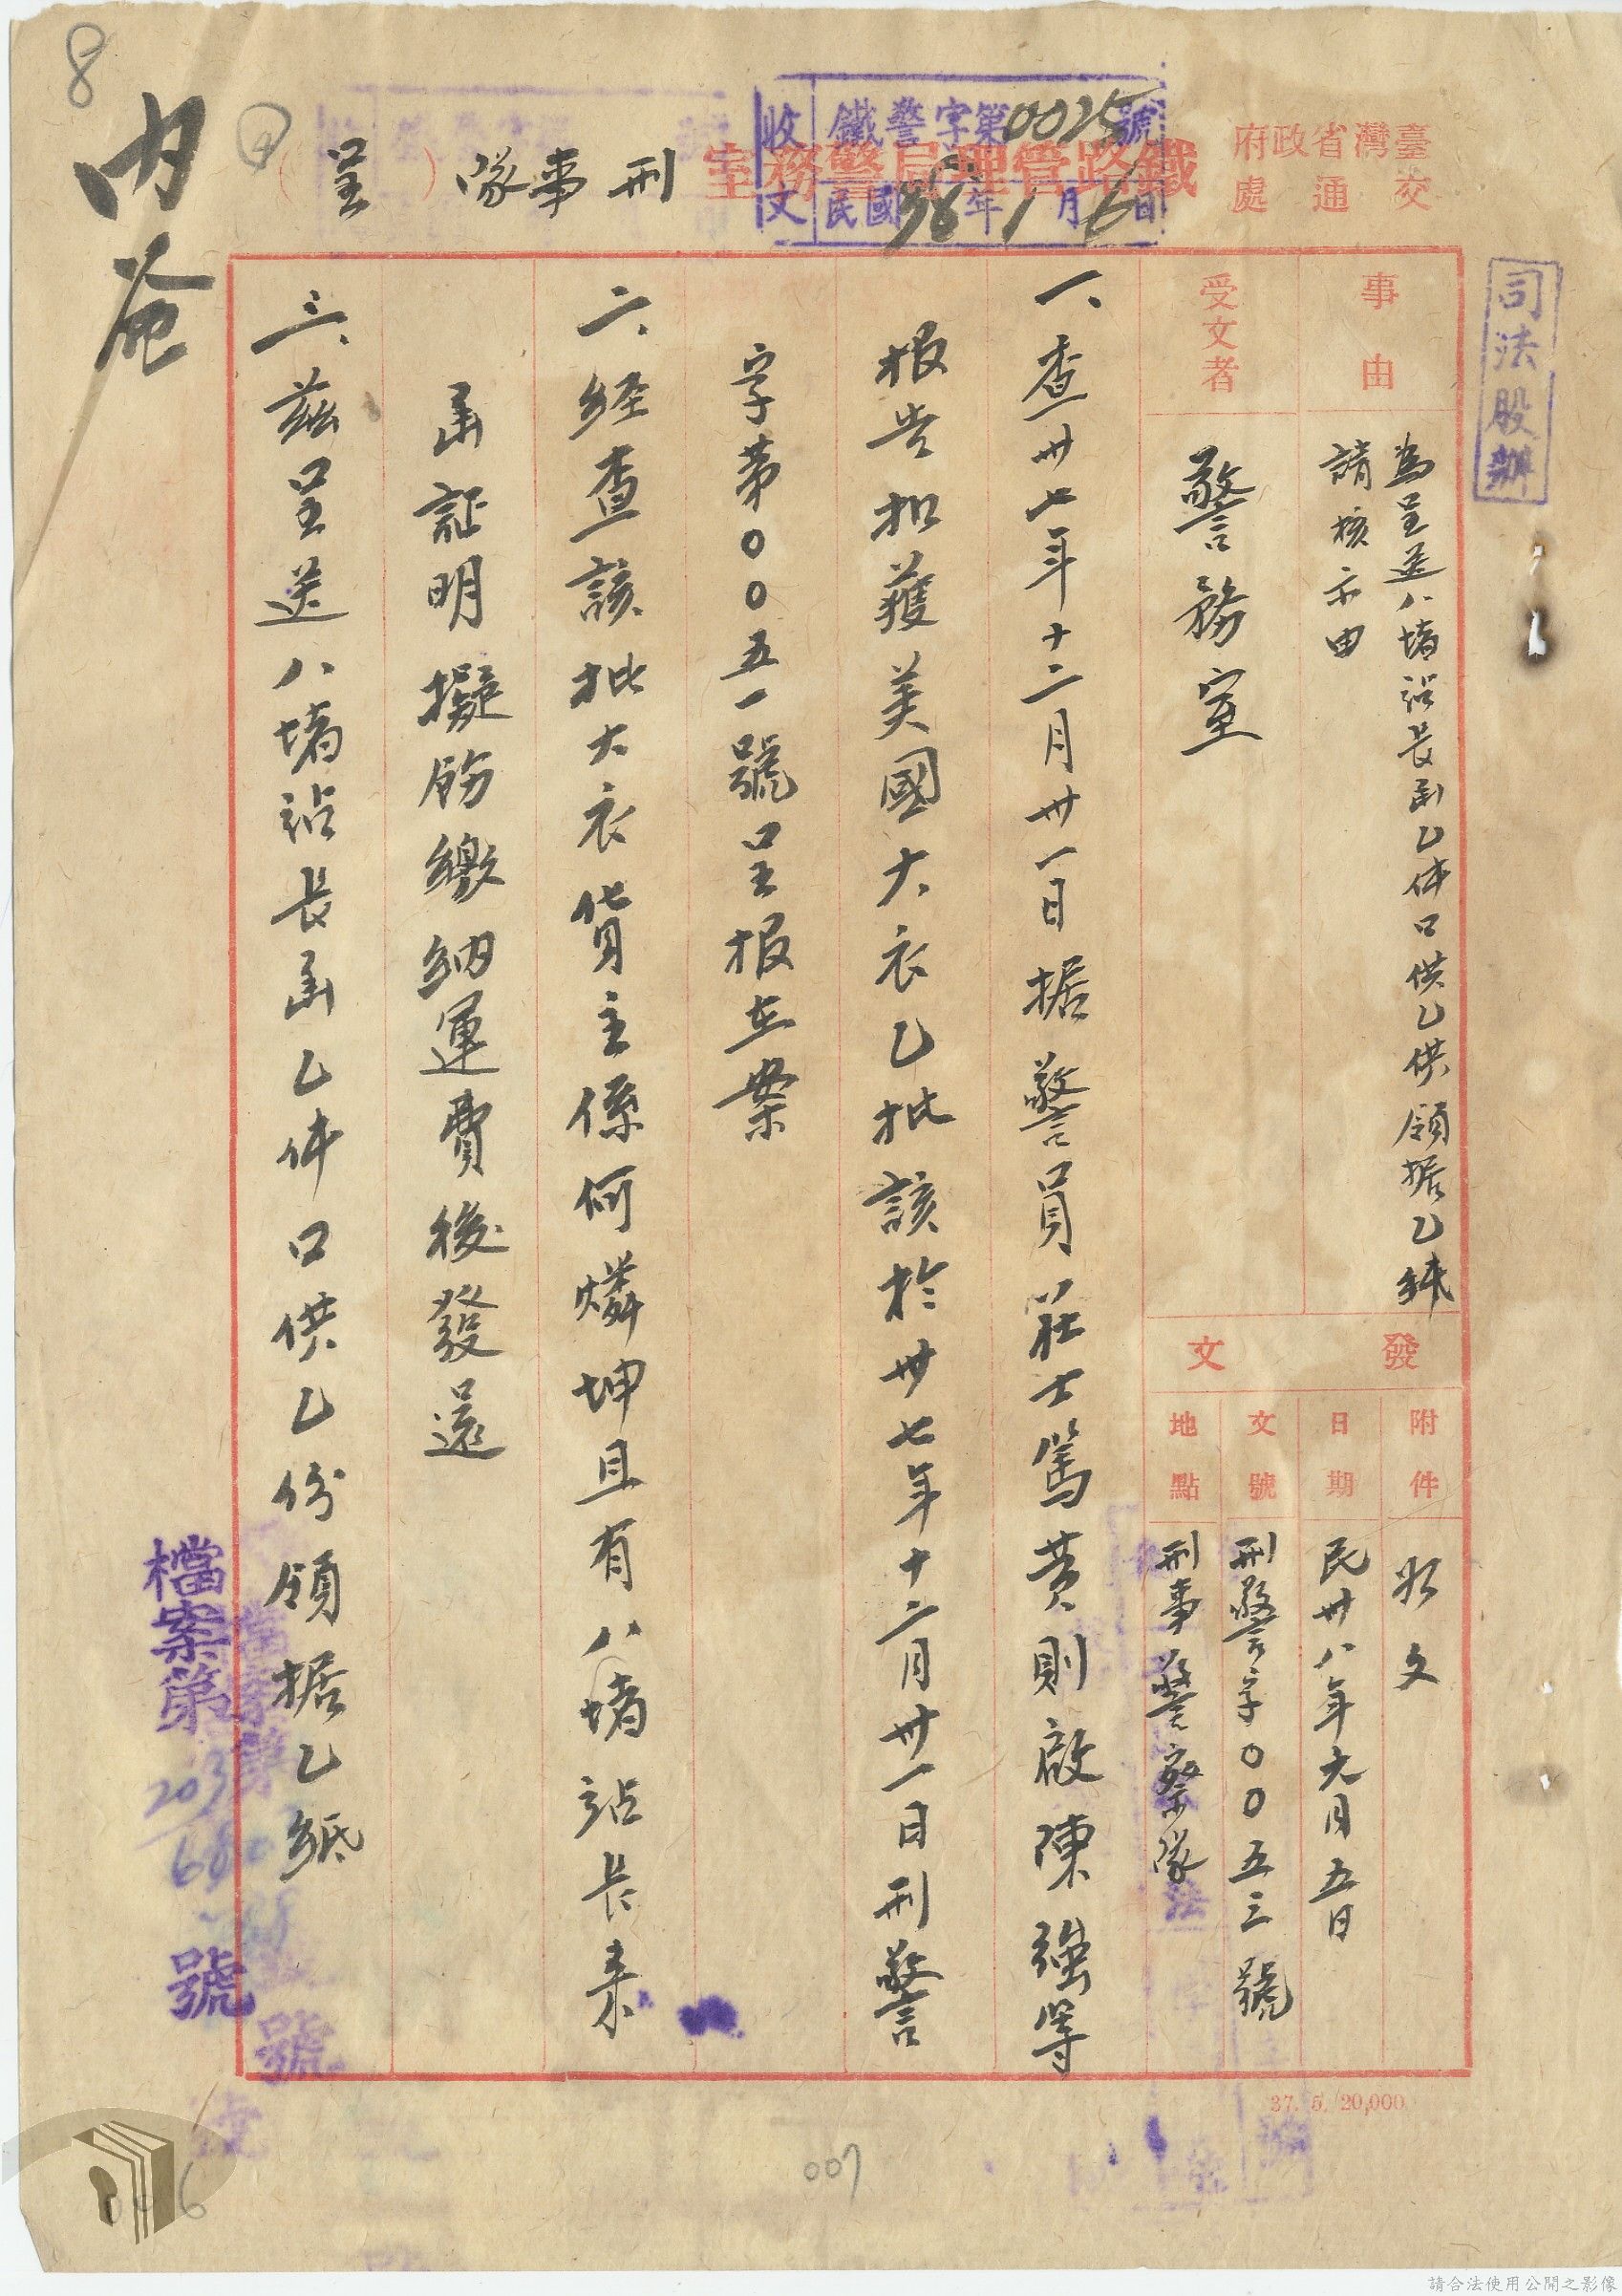 臺灣省政府
交通處
鐵路管理局警務室
刑事隊
（呈）
收文
鐵警字第0025號
民國38年1月6日
司法股辦
事由
為呈送八堵站長函乙件口供乙供領据乙紙
請核示由
受文者
警務室
發文
附件
日期
文號
地點
附文
民卅八年元月五日
刑警字00五三號
刑事警察隊
一、查卅七年十二月卅一日据警員莊士篤黃則啟陳強等
報告扣獲美國大衣乙批該於卅七年十二月卅一日刑警
字第00五一號呈報在案
二、経查該批大衣貨主係何燐坤且有八堵站長来
函証明擬飭繳納運費後發還
三、茲呈送八堵站長函乙件口供乙份領据乙紙
檔案第
203
680
號
8
37. 5. 20,000.
007
006
請合法使用公開之影像